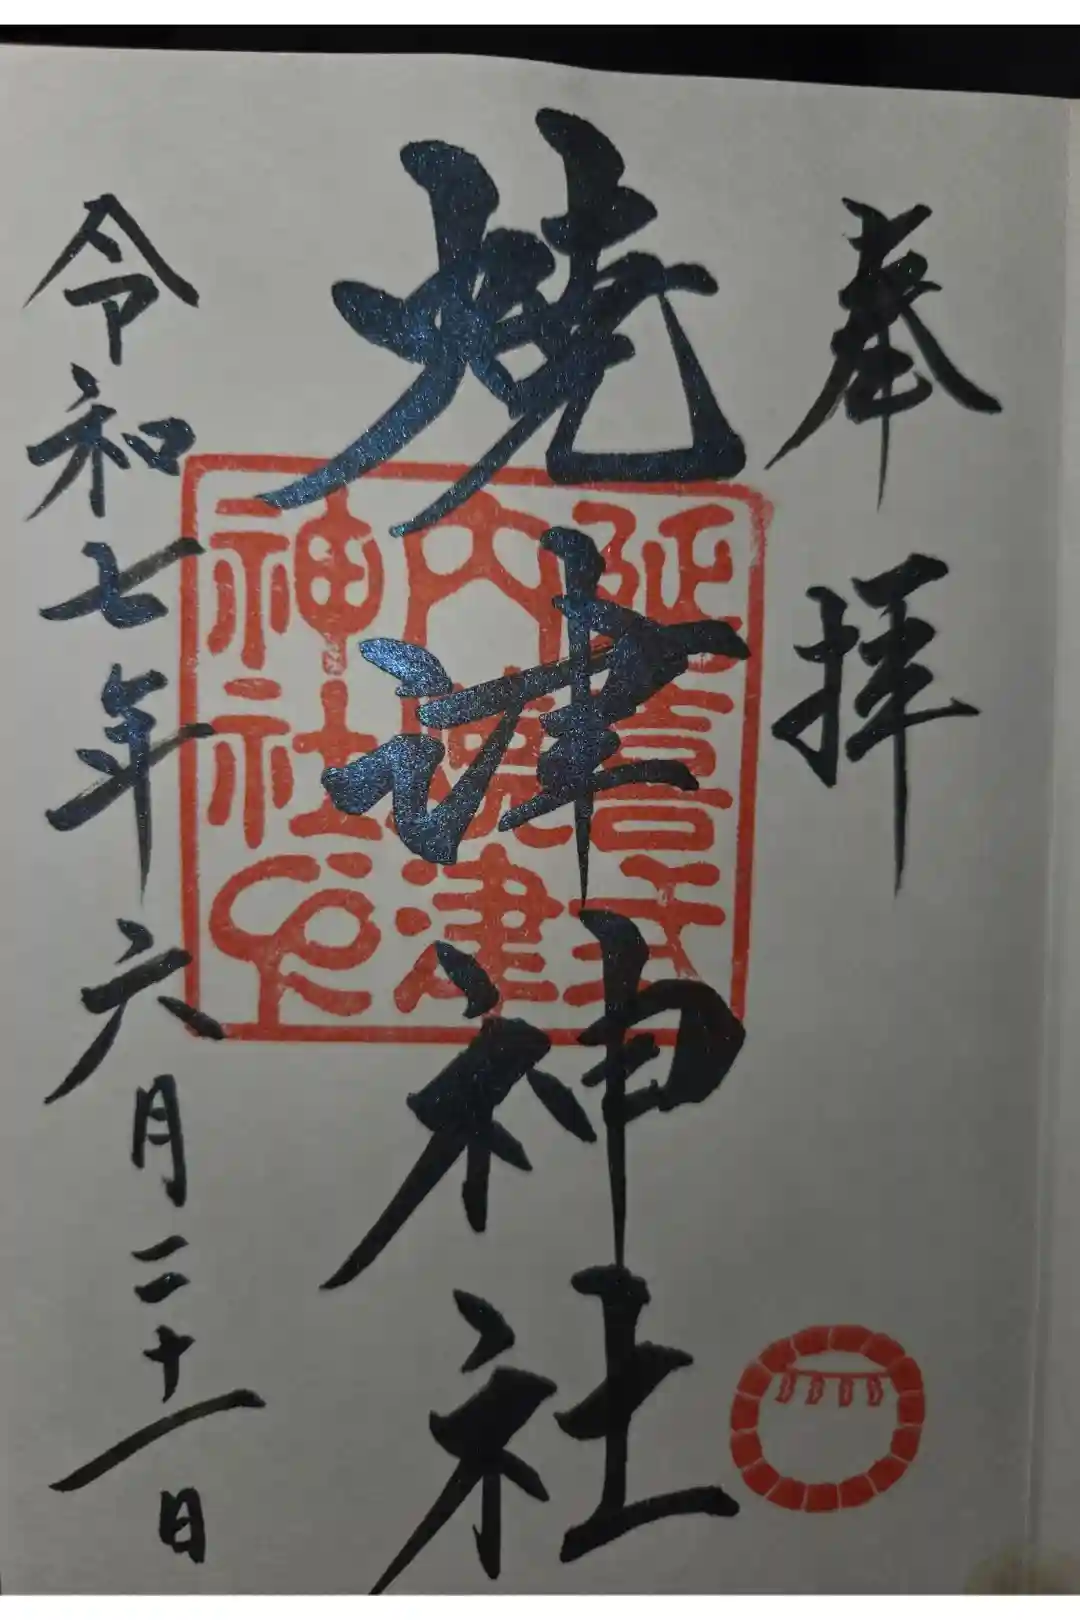 奉拝
焼津神社
延喜式
内焼津
神社印
令和七年六月二十一日